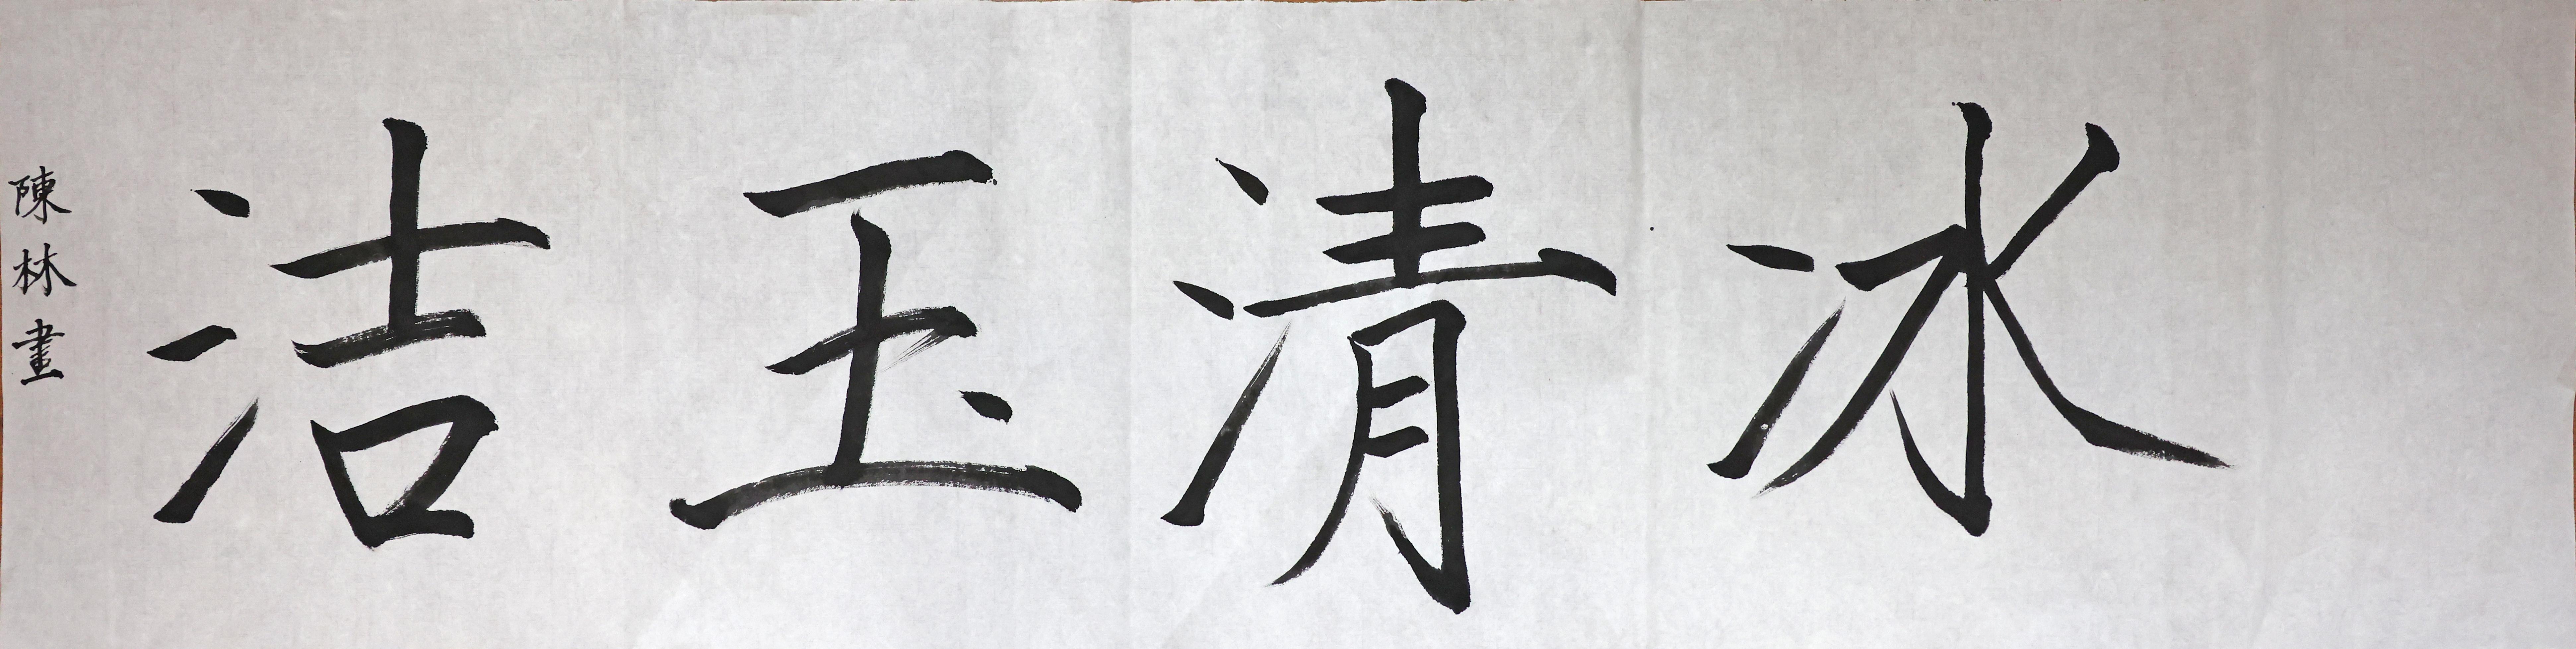 冰清玉洁
陳林書